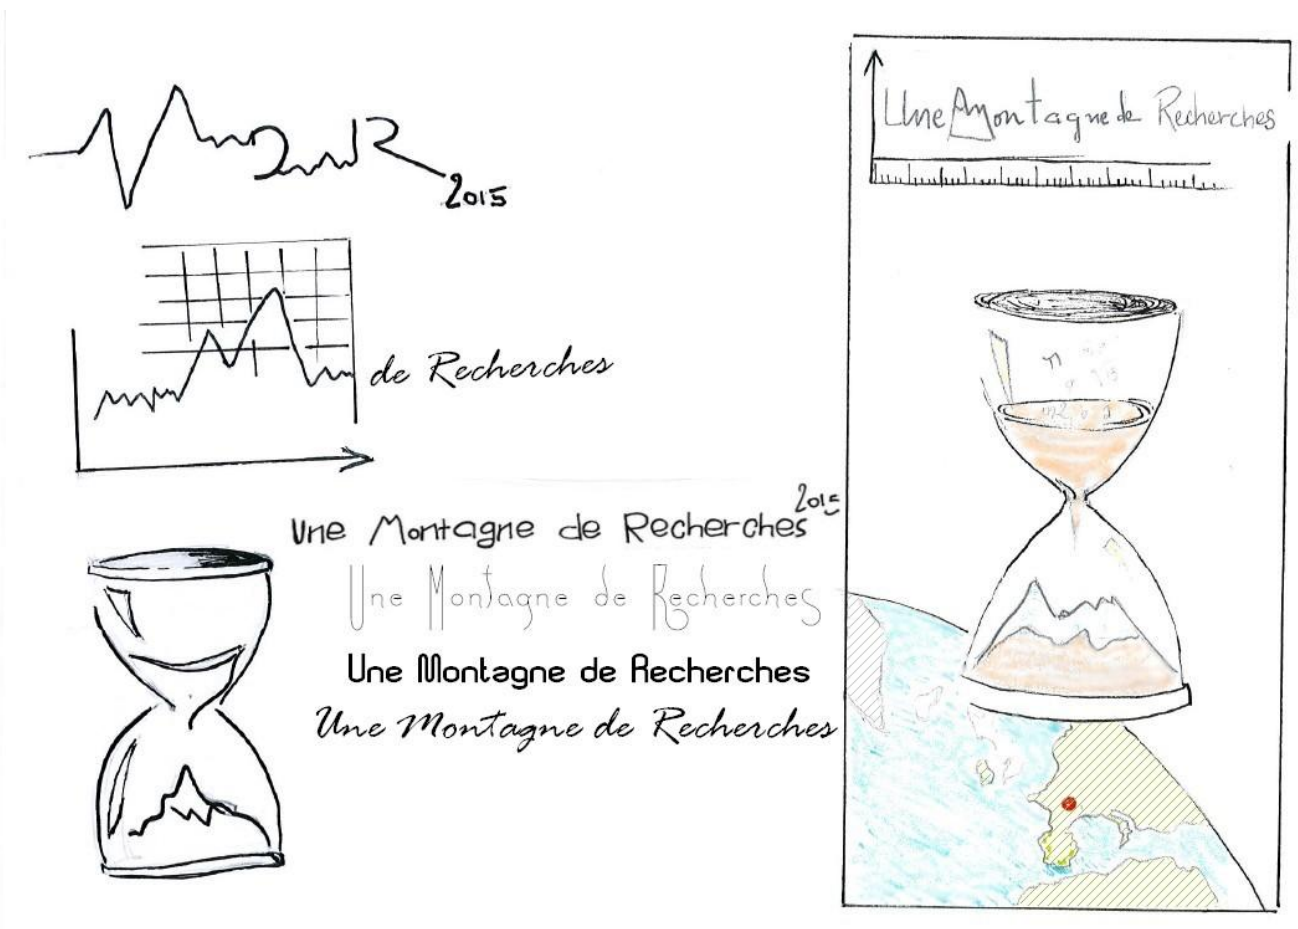 2015
de Recherches
Une Montagne de Recherches
2015
Une Montagne de Recherches
Une Montagne de Recherches
Une Montagne de Recherches
Une Montagne de Recherches